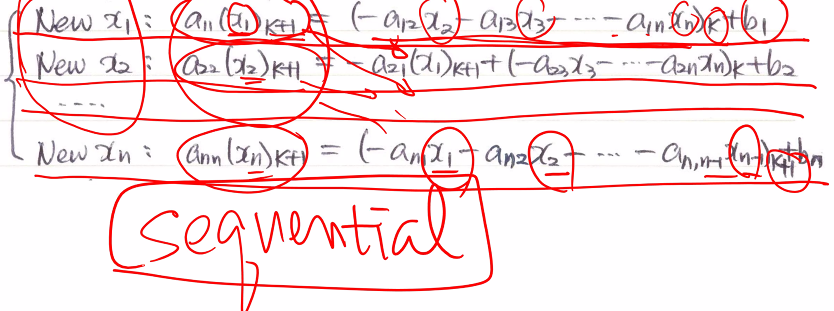 New x₁ : a₁₁(x₁)ₖ₊₁ = (-a₁₂x₂ - a₁₃x₃ - ... - a₁ₙxₙ)ₖ + b₁
New x₂ : a₂₂(x₂)ₖ₊₁ = -a₂₁(x₁)ₖ₊₁ + (-a₂₃x₃ - ... - a₂ₙxₙ)ₖ + b₂
....
New xₙ : aₙₙ(xₙ)ₖ₊₁ = (-aₙ₁x₁ - aₙ₂x₂ - ... - aₙ,ₙ₋₁xₙ₋₁)ₖ₊₁ + bₙ
sequential